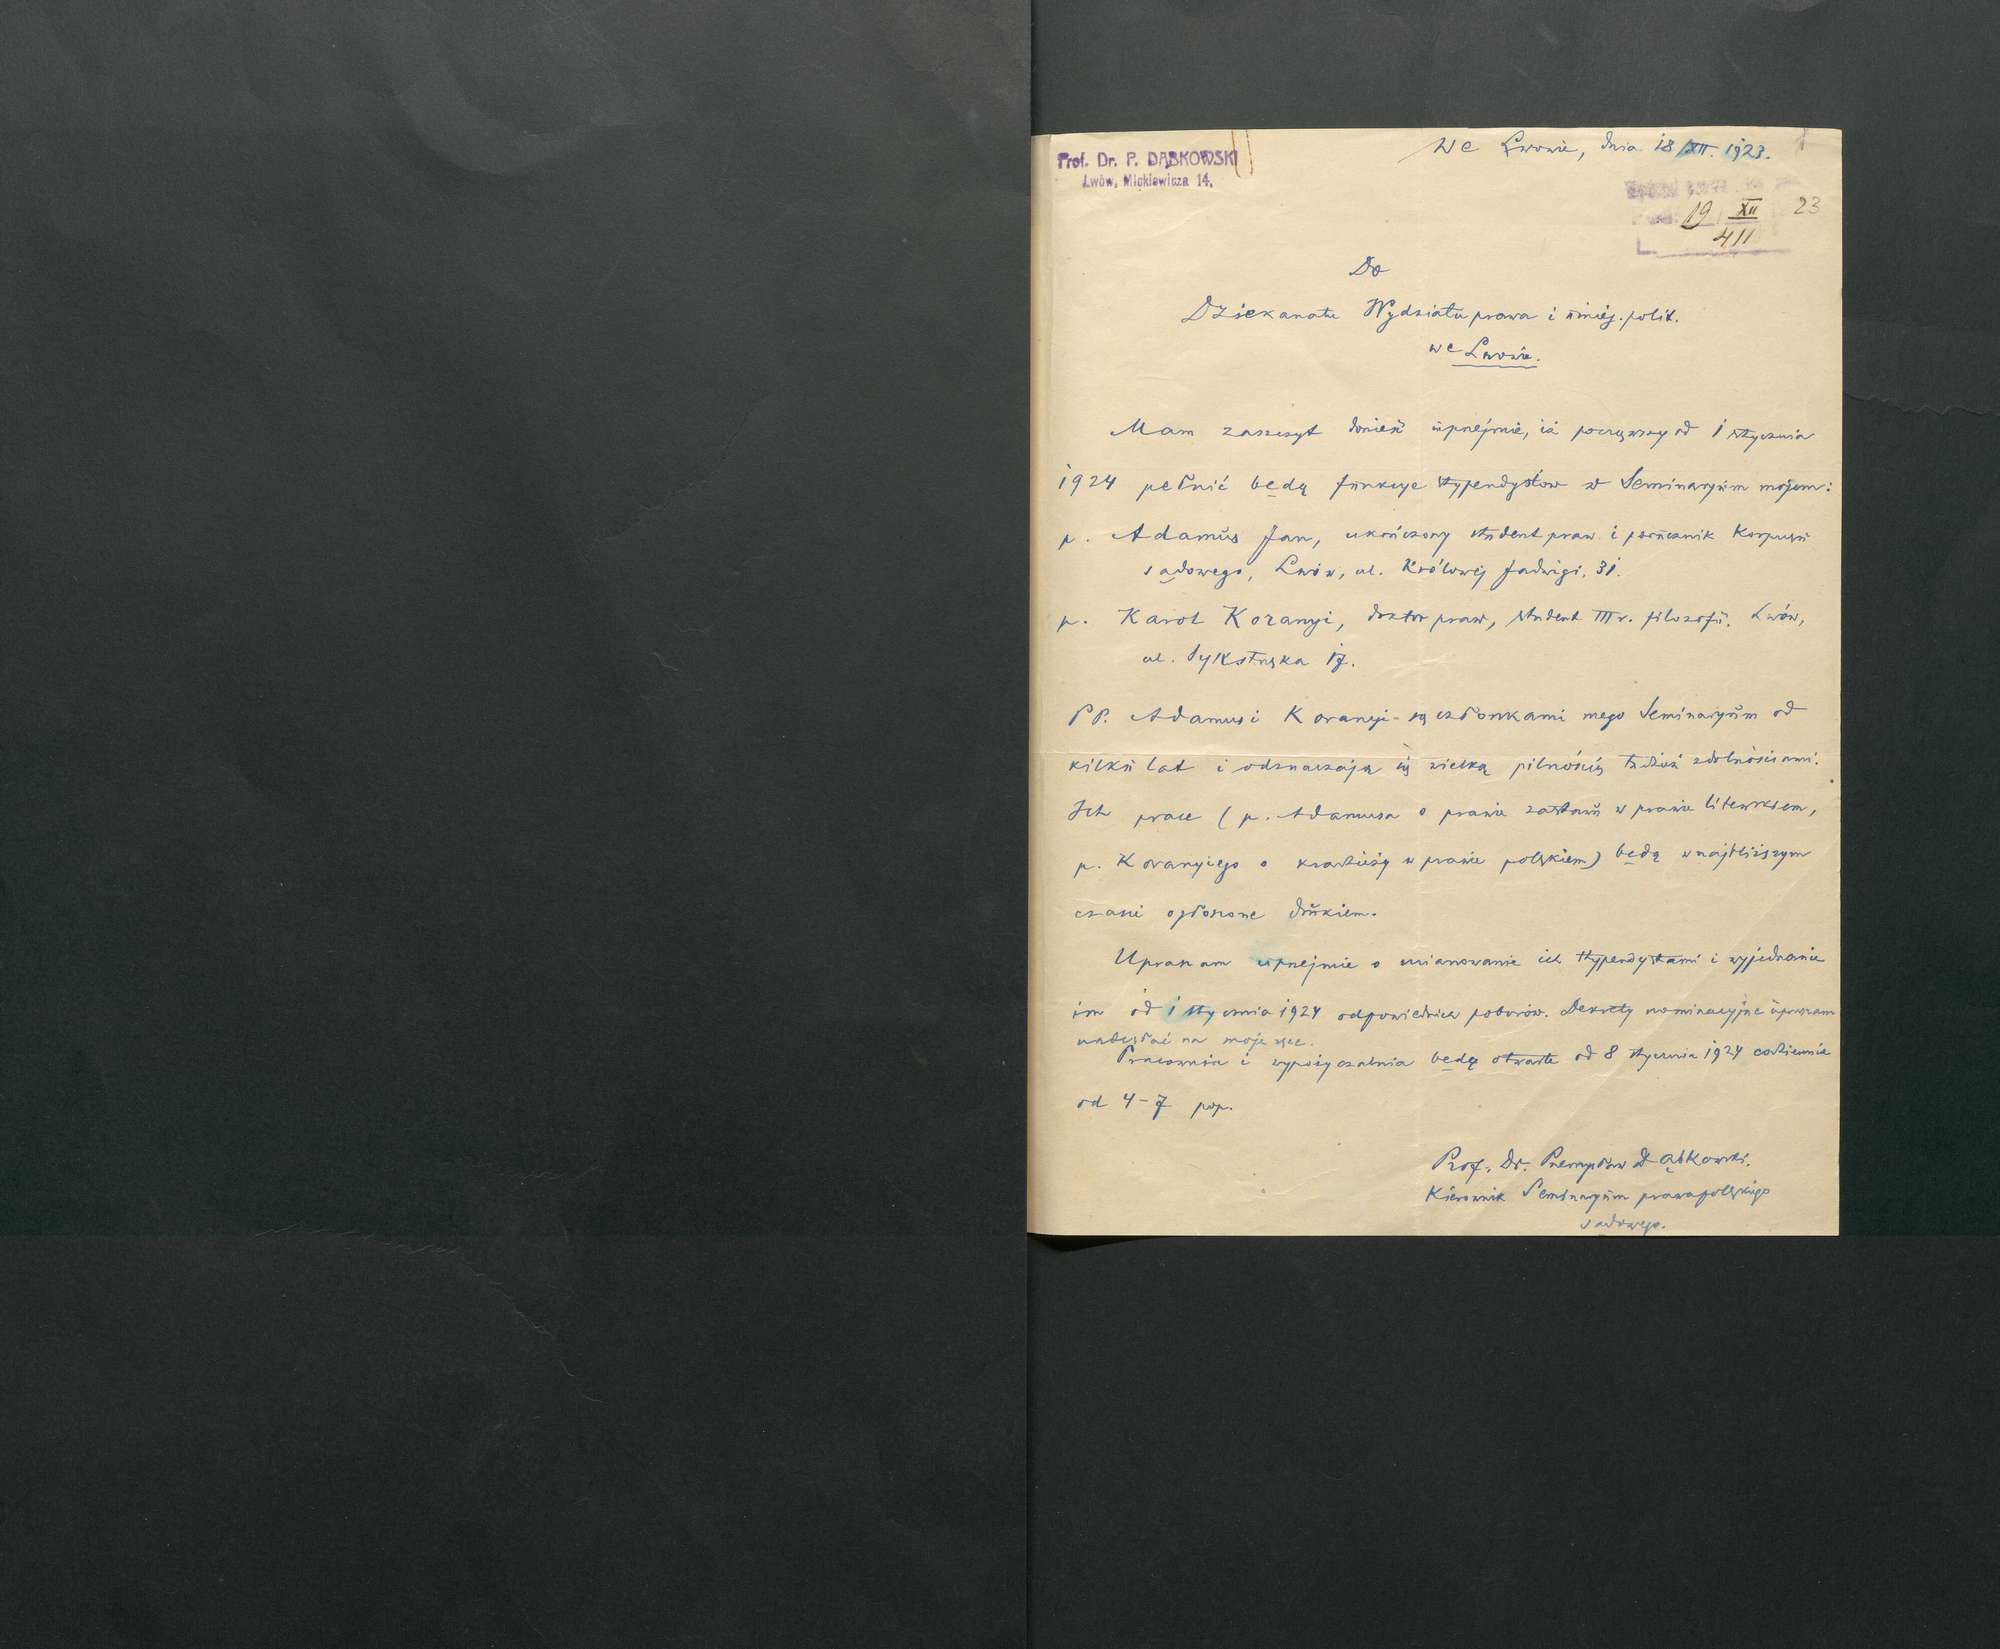 Prof. Dr. P. DĄBKOWSKI
Lwów, Mickiewicza 14.
We Lwowie, dnia 18/XII. 1923.
19 XII 23
L. 411
Do
Dziekanatu Wydziału prawa i umiej. polit.
we Lwowie.
Mam zaszczyt donieść uprzejmie, iż począwszy od 1 stycznia
1924 pełnić będą funkcye stypendystów w Seminaryum mojem:
p. Adamus Jan, ukończony student praw i porucznik Korpusu
sądowego, Lwów, ul. Królowej Jadwigi, 31.
p. Karol Koranyi, doktor praw, student III r. filozofii, Lwów,
ul. Sykstuska 17.
PP. Adamus i Koranyi są członkami mego Seminaryum od
kilku lat i odznaczają się wielką pilnością tudzież zdolnościami.
Ich prace (p. Adamusa o prawie zastawu w prawie litewskiem,
p. Koranyiego o kradzieży w prawie polskiem) będą w najbliższym
czasie ogłoszone drukiem.
Upraszam uprzejmie o mianowanie ich stypendystami i wyjednanie
im od 1 stycznia 1924 odpowiednich poborów. Dekrety nominacyjne upraszam
nadesłać na moje ręce.
Pracownia i wypożyczalnia będą otwarte od 8 stycznia 1924 codziennie
od 4-7 pop.
Prof. Dr. Przemysław Dąbkowski.
Kierownik Seminaryum prawa polskiego
sądowego.